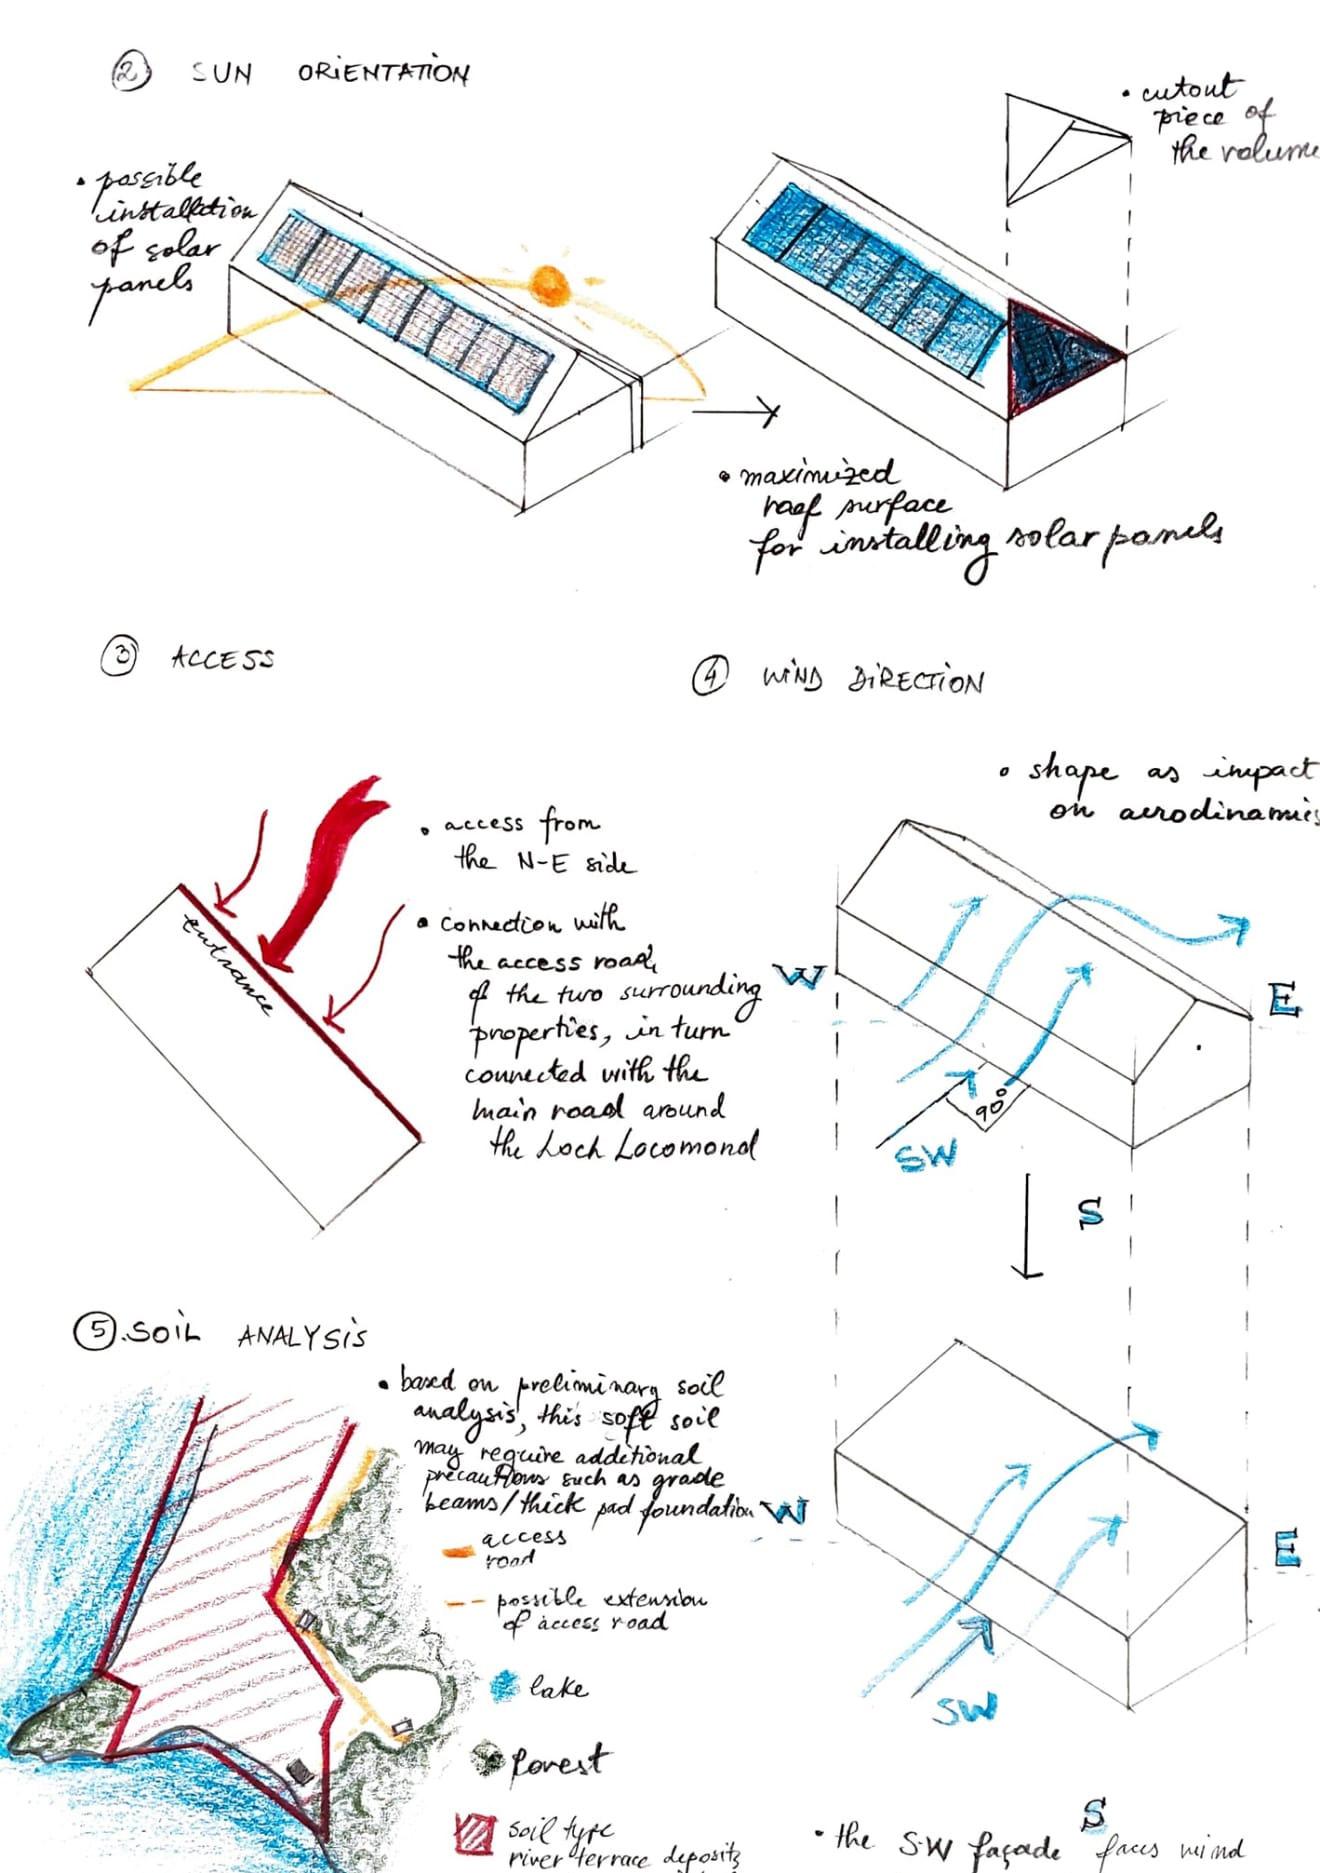 ② SUN ORiENTATiON
• possible
installation
of solar
panels
• cutout
piece of
the volume
• maximized
roof surface
for installing solar panels
③ ACCESS
entrance
• access from
the N-E side
• connection with
the access road,
of the two surrounding
properties, in turn
connected with the
main road around
the Loch Locomond
④ WiND DiRECTiON
• shape as impact
on aerodinamics
W
E
90°
SW
S
W
E
SW
S
• the S-W façade faces wind
⑤.SOiL ANALYSiS
• based on preliminary soil
analysis, this soft soil
may require additional
precautions such as grade
beams/thick pad foundation
access
road
possible extension
of access road
lake
forest
soil type
river terrace deposits